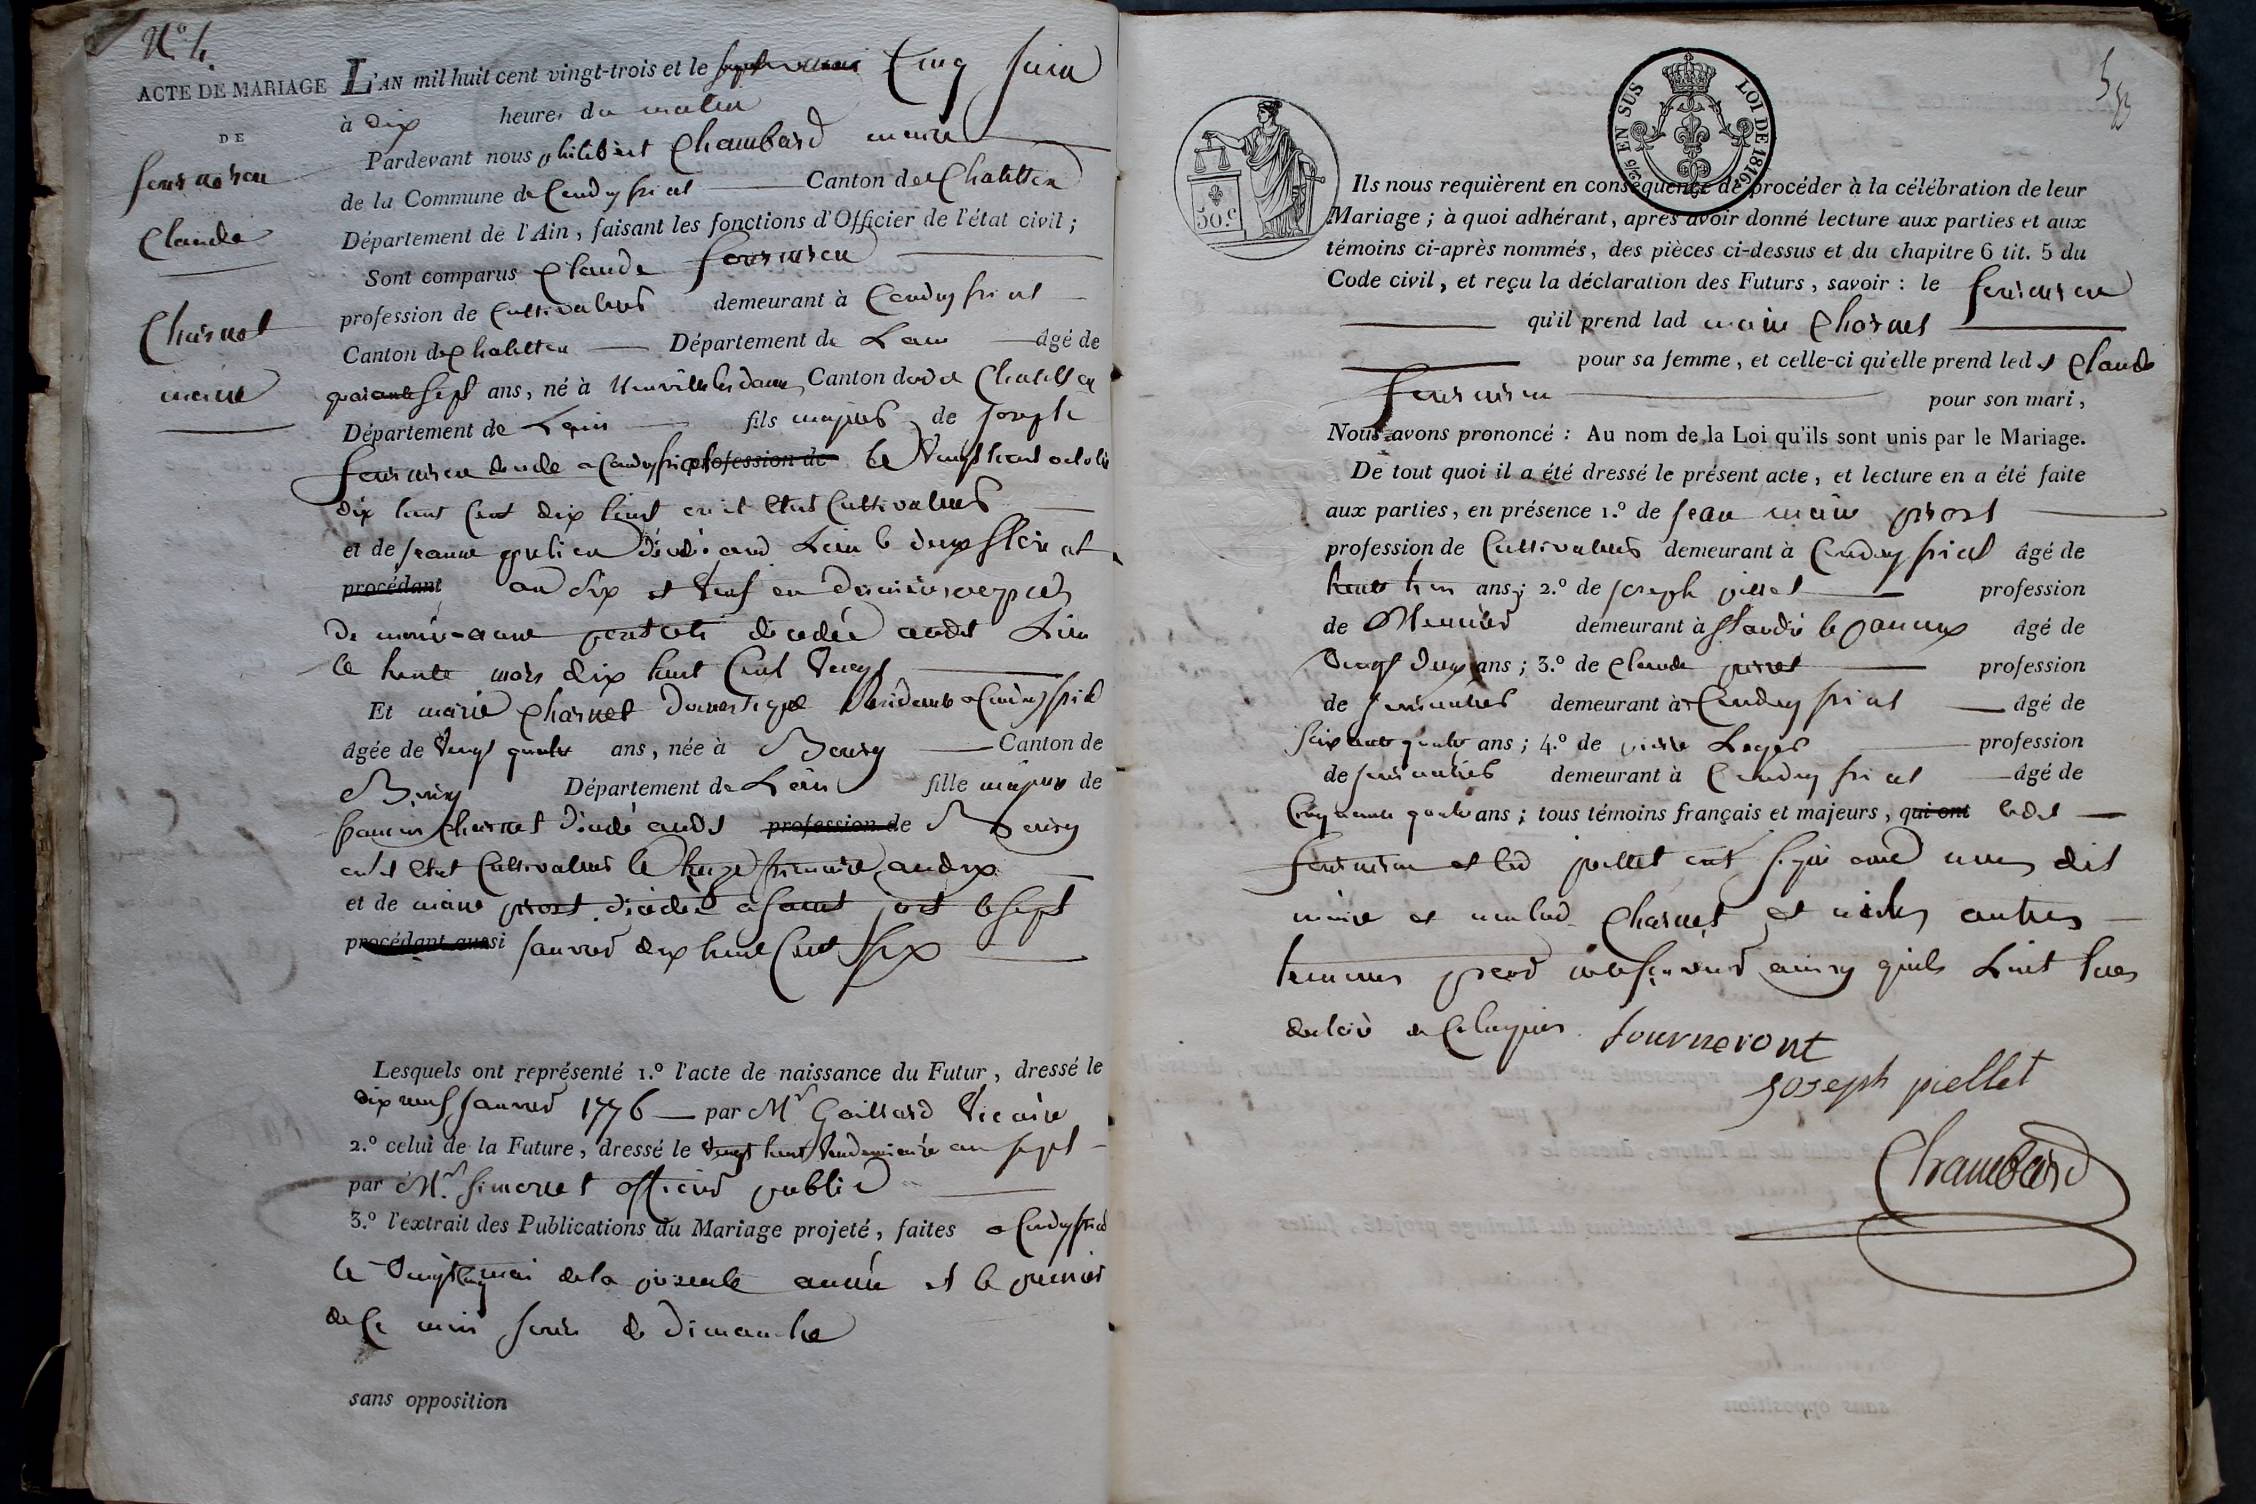 N.o 4.
ACTE DE MARIAGE
DE
fourneron
Claude
Charnet
marie
L'AN mil huit cent vingt-trois et le Cinq Juin
à dix heures du matin
Pardevant nous philibert Chambard maire
de la Commune de Condeyssiat Canton de Chatillon
Département de l'Ain, faisant les fonctions d'Officier de l'état civil;
Sont comparus Claude fourneron
profession de Cultivateur demeurant à Condeyssiat
Canton de Chatillon Département de Lain âgé de
quarante sept ans, né à Neuville les dames Canton dud Chatillon
Département de Lain fils majeur de joseph
fourneron décédé a Condeyssiat profession de le vingt huit octobre
dix huit Cent dix huit en il était Cultivateur
et de jeanne décédé aud Lieu le deux floreal
procédant an dix et veuf en
de marie-anne décédée audit Lieu
le trente mars dix huit Cent vingt
Et marie Charnet domestique residante a Condeyssiat
âgée de vingt quatre ans, née à Bourg Canton de
Bourg Département de Lain fille majeure de
Charnet décédé audit profession de Bourg
était Cultivateur le treize frimaire an dix
et de marie décédée a le sept
procédant aussi janvier dix huit Cent six
Lesquels ont représenté 1.o l'acte de naissance du Futur, dressé le
dix neuf janvier 1776 par M.r Gaillard Vicaire
2.o celui de la Future, dressé le vingt huit Vendemiaire an sept
par M.r Simonet officier public
3.o l'extrait des Publications du Mariage projeté, faites a Condeyssiat
le vingt cinq mai de la presente année et le premier
de Ce mois jours de dimanche
sans opposition
5
25 EN SUS LOI DE 1816
50 c.
Ils nous requièrent en conséquence de procéder à la célébration de leur
Mariage; à quoi adhérant, après avoir donné lecture aux parties et aux
témoins ci-après nommés, des pièces ci-dessus et du chapitre 6 tit. 5 du
Code civil, et reçu la déclaration des Futurs, savoir: le fourneron
qu'il prend lad marie Charnet
pour sa femme, et celle-ci qu'elle prend led Claude
fourneron pour son mari,
Nous avons prononcé: Au nom de la Loi qu'ils sont unis par le Mariage.
De tout quoi il a été dressé le présent acte, et lecture en a été faite
aux parties, en présence 1.o de jean marie
profession de Cultivateur demeurant à Condeyssiat âgé de
trente ans; 2.o de joseph pillet profession
de Meunier demeurant à St andré le panoux âgé de
vingt deux ans; 3.o de Claude profession
de demeurant à Condeyssiat âgé de
soixante quatre ans; 4.o de pierre Leger profession
de demeurant à Condeyssiat âgé de
Cinquante quatre ans; tous témoins français et majeurs, qui ont ledit
fourneron et led pillet ont signé avec nous dit
maire et non lad Charnet et ni les autres
temoins pour ne savoir ainsy qu'ils L'ont
déclaré de Ce requis. fourneront
joseph piellet
Chambard